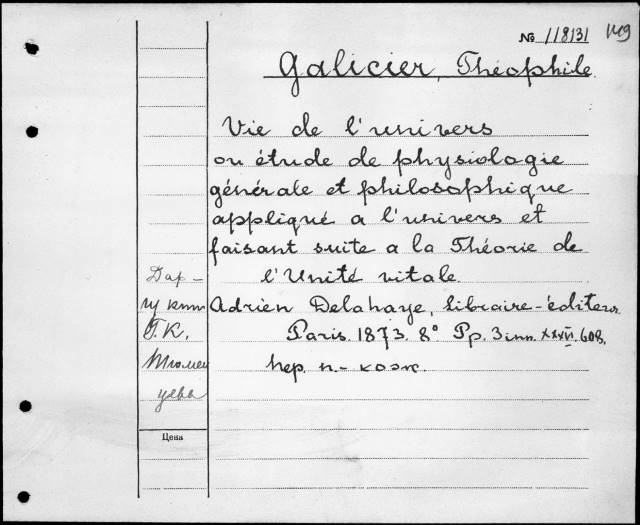 № 118131
Galicier, Théophile.
Vie de l'univers
ou étude de physiologie
générale et philosophique
appliqué a l'univers et
faisant suite a la Théorie de
l'Unité vitale.
Adrien Delahaye, libraire-éditeur
Paris. 1873. 8° Pp. 3 inn. XXVI. 608.
пер. п.-кож.
Дар
Г.К.
Цена